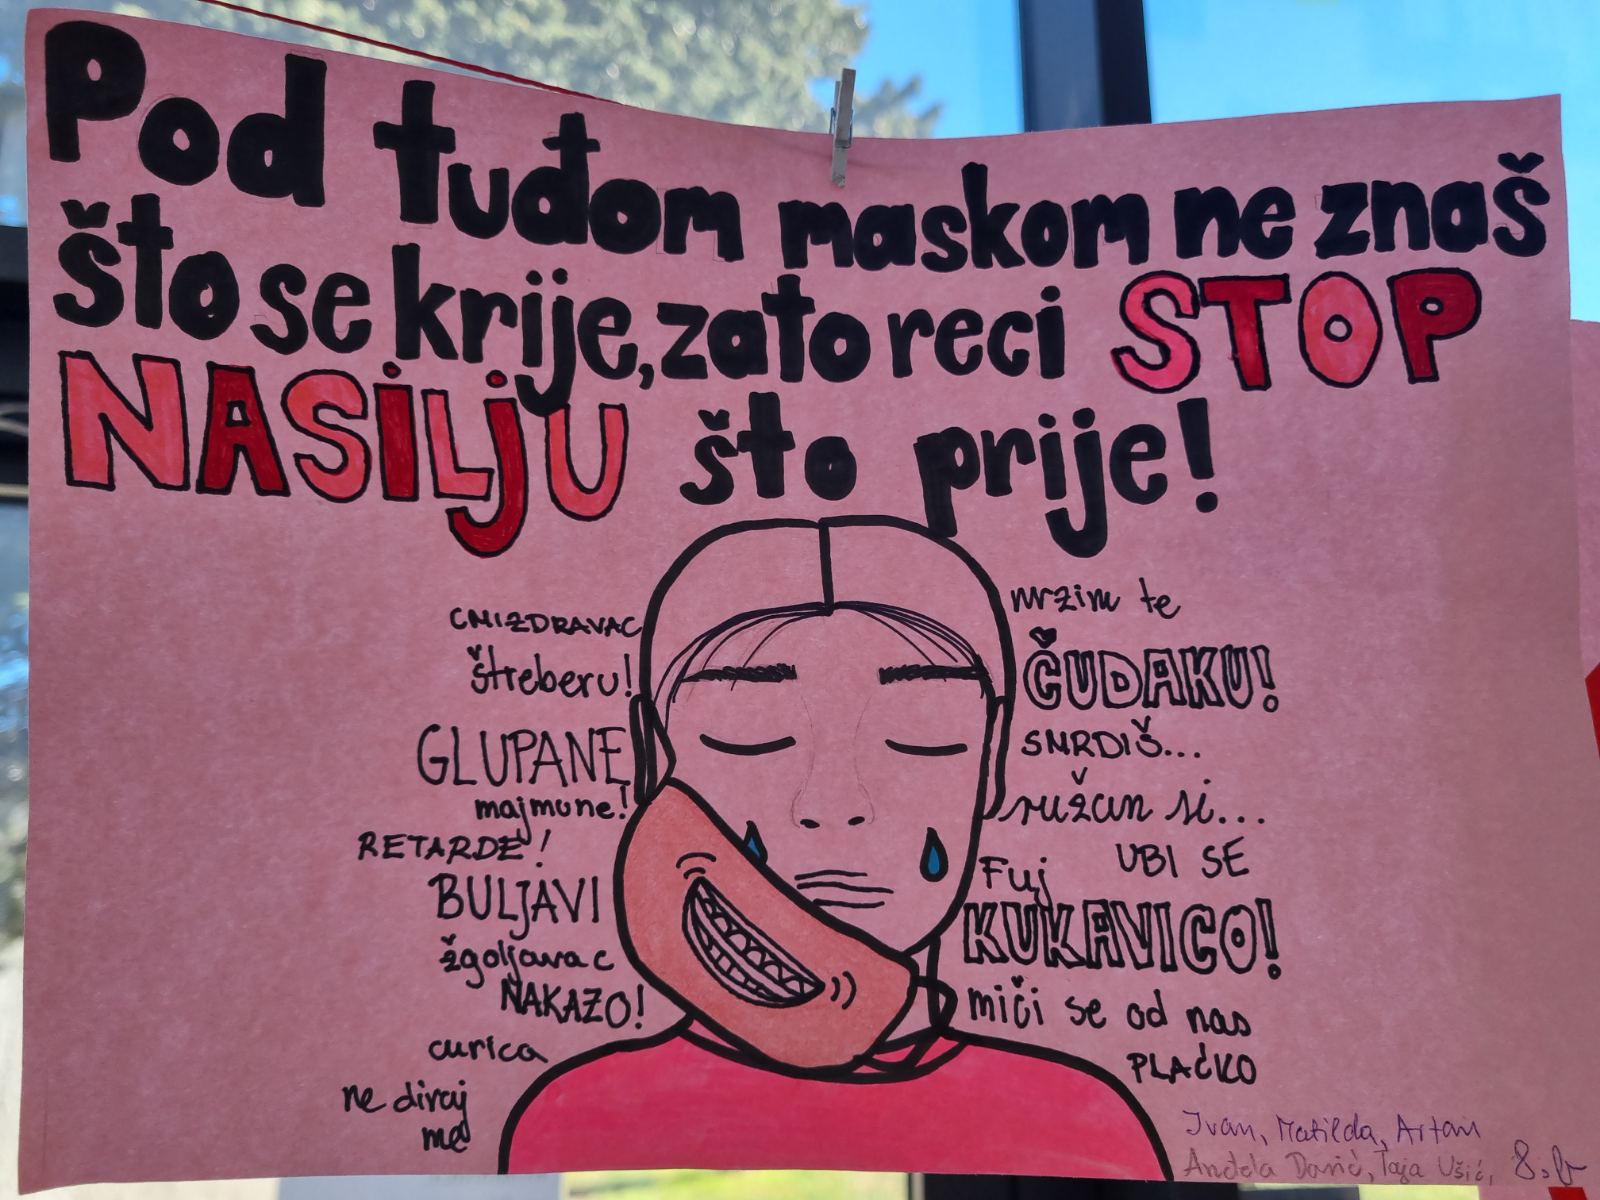 Pod tuđom maskom ne znaš
što se krije, zato reci STOP
NASILJU što prije!
CMIZDRAVAC
štreberu!
GLUPANE
majmune!
RETARDE!
BULJAVI
žgoljavac
NAKAZO!
curica
ne diraj
me
mrzim te
ČUDAKU!
SMRDIŠ...
ružan si...
UBI SE
Fuj
KUKAVICO!
miči se od nas
PLAČKO
Ivan, Matilda, Artan
Anđela Darić, Taja Ušić, 8.b